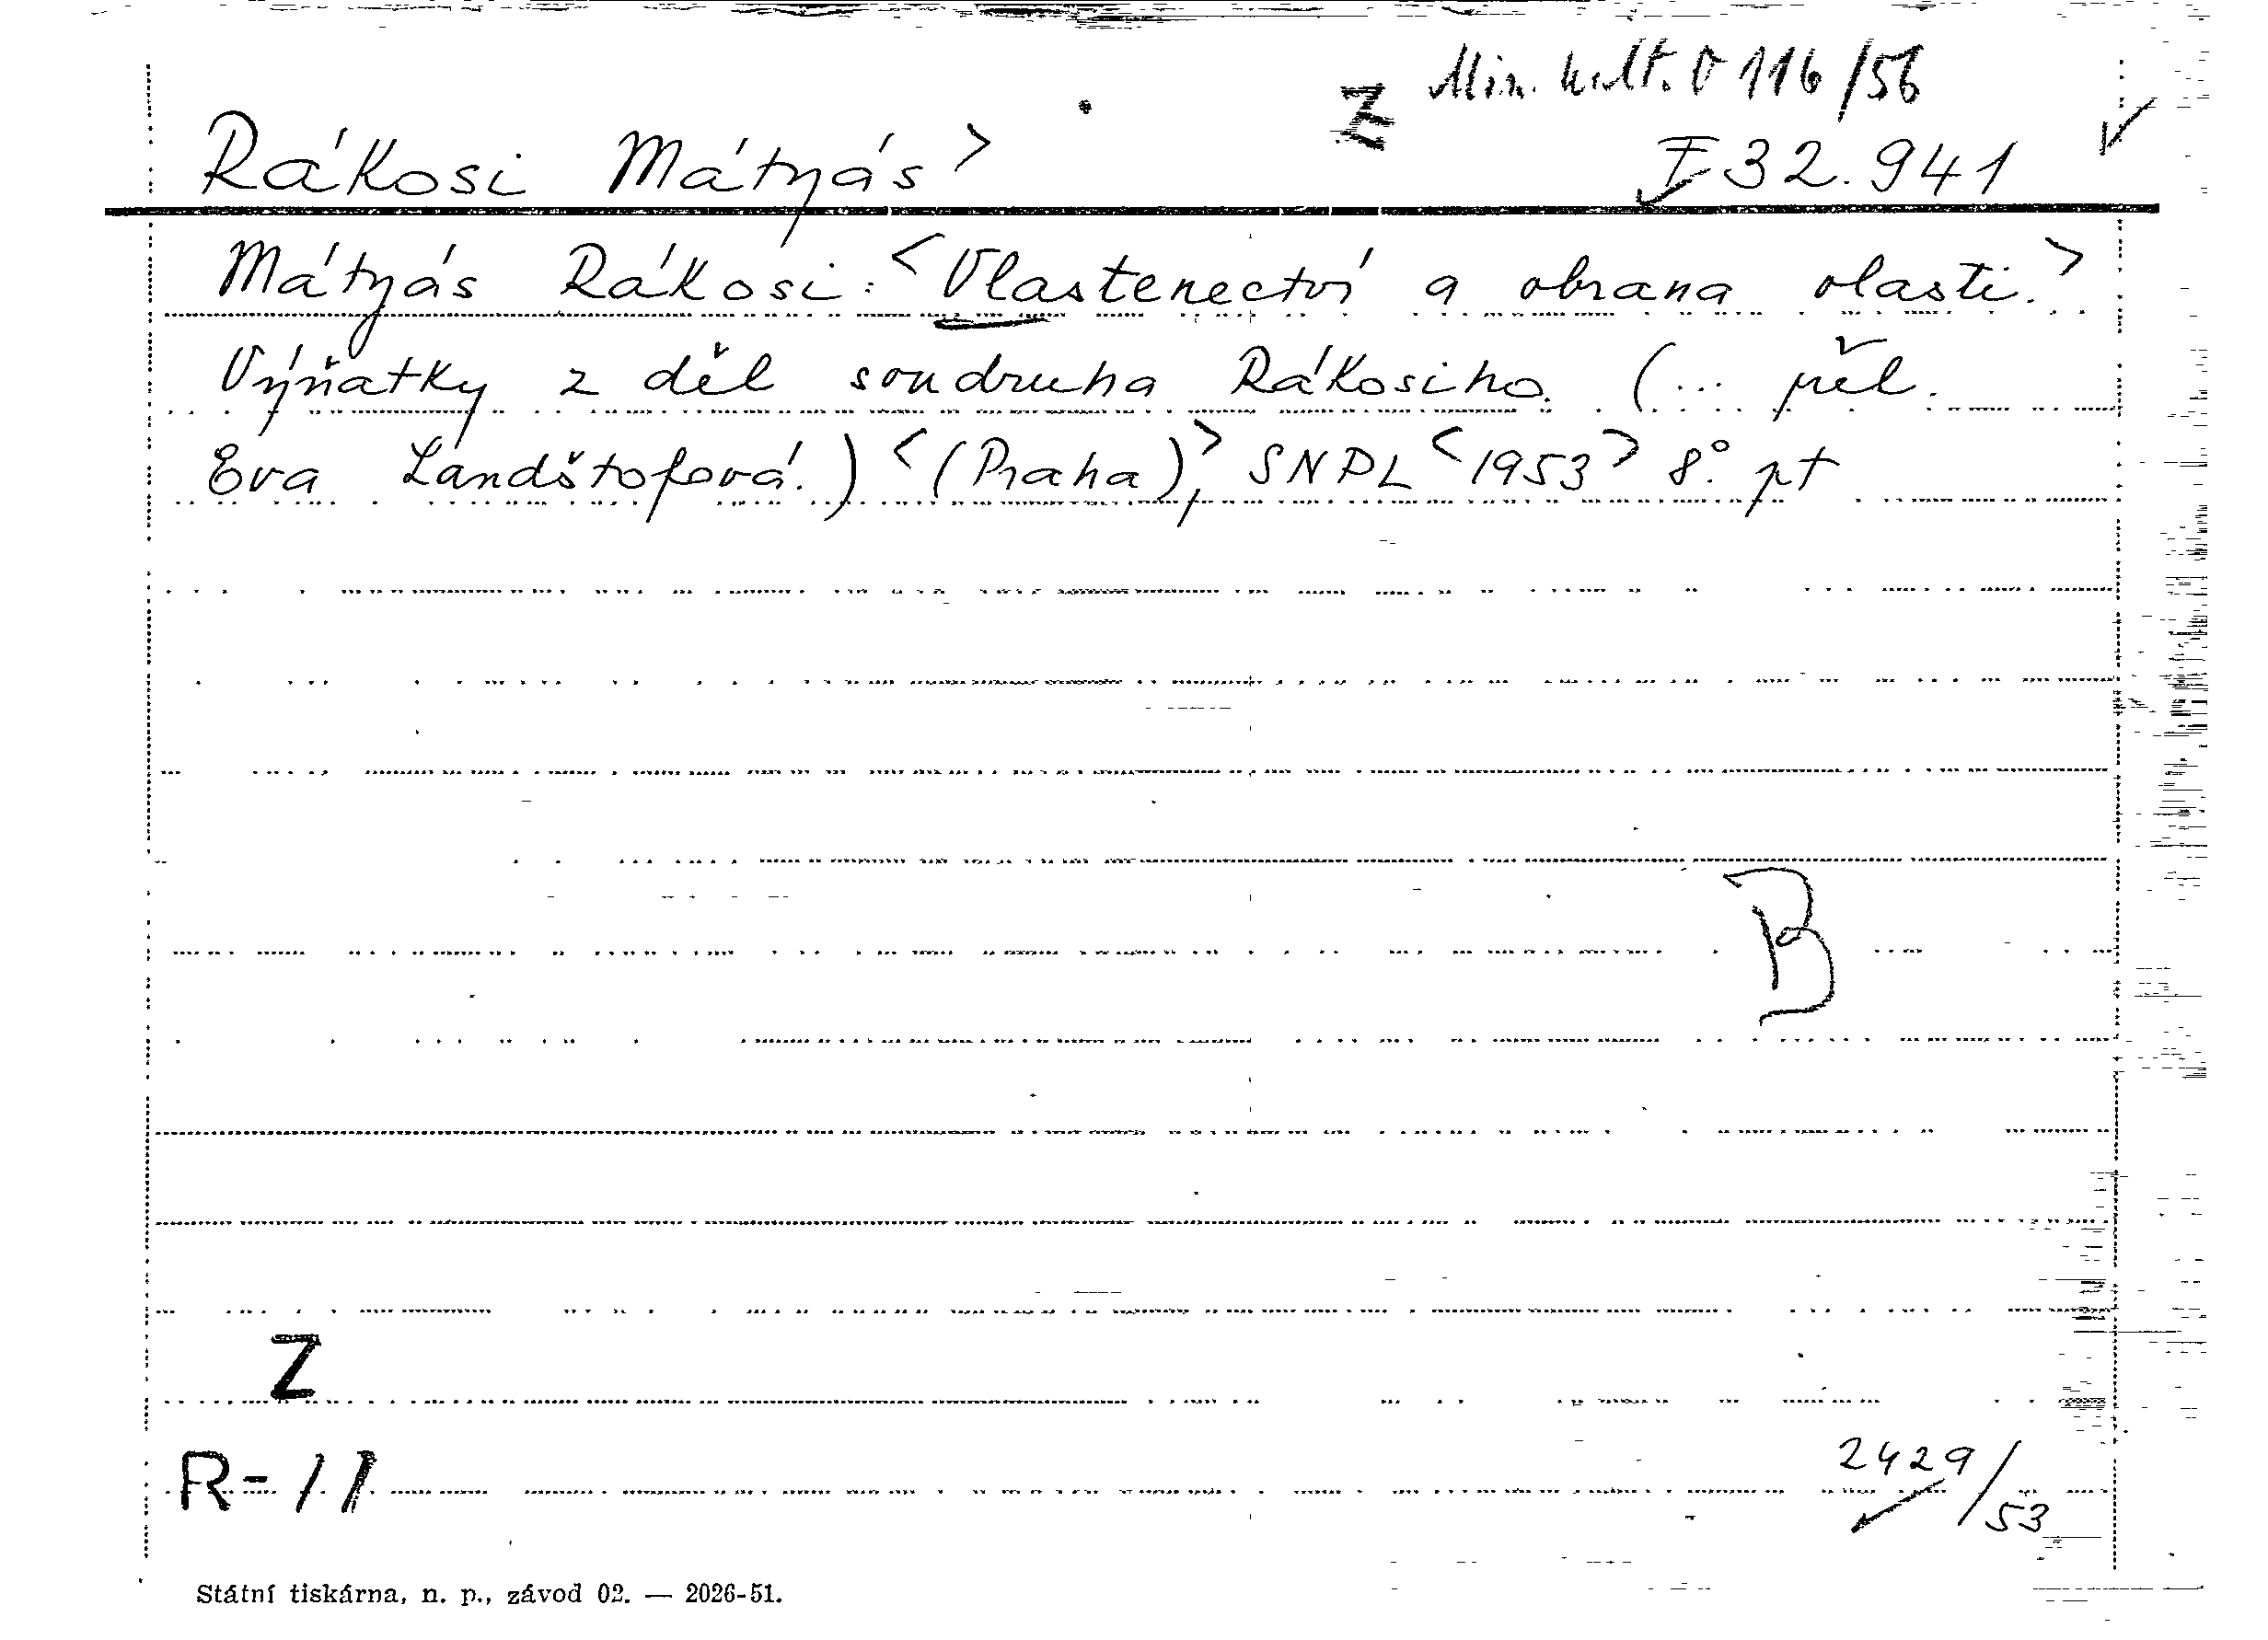 Z Min. kult. V 116/56
Rákosi Mátyás> I 32.941
Mátyás Rákosi: <Vlastenectví a obrana vlasti.>
Výňatky z děl soudruha Rákosiho. (... přel.
Eva Landštofová.) <(Praha),> SNPL <1953> 8° pt
B
Z
R-11
2429/53
Státní tiskárna, n. p., závod 02. — 2026-51.